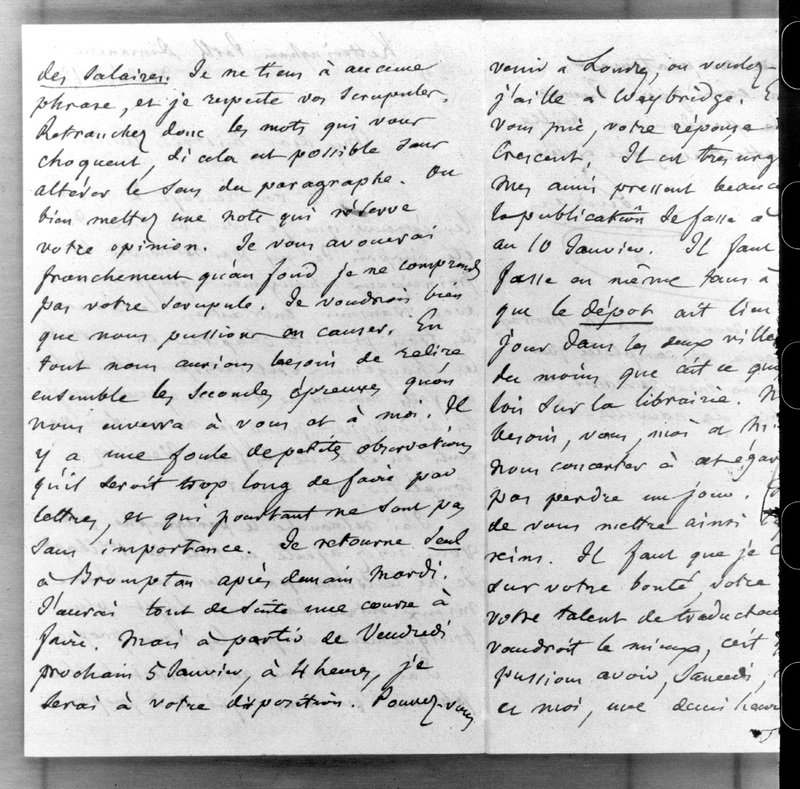 des Salaires. Je ne tiens à aucune
phrase, et je respecte vos scrupules.
Retranchez donc les mots qui vous
choquent, si cela est possible sans
altérer le sens du paragraphe. Ou
bien mettez une note qui réserve
votre opinion. Je vous avouerai
franchement qu'au fond je ne comprends
pas votre scrupule. Je voudrois bien
que nous pussions en causer. En
tout nous aurions besoin de relire
ensemble les secondes épreuves qu'on
nous enverra à vous et à moi. Il
y a une foule de petites observations
qu'il seroit trop long de faire par
lettres, et qui pourtant ne sont pas
sans importance. Je retourne seul
à Brompton après demain mardi.
J'aurai tout de suite une course à
faire. Mais à partir de Vendredi
prochain 5 Janvier, à 4 heures, je
serai à votre disposition. Pouvez-vous
venir à Londres, ou voulez-
j'aille à Weybridge.
vous prie, votre réponse
Crescent. Il est très urg
Mes amis pressent beauc
la publication se fasse à
au 10 Janvier. Il faut
fasse en même tems à
que le dépôt ait lieu
jour dans les deux ville
du moins que c'est ce que
loix sur la librairie.
besoin, vous, moi et
nous concerter à cet égar
pas perdre un jour.
de vous mettre ainsi
reins. Il faut que je c
sur votre bonté, votre
votre talent de traducteu
vaudroit le mieux, c'est
pussions avoir, Samedi,
et moi, une demi heure